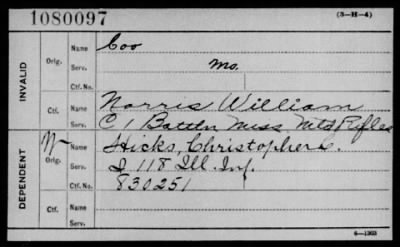 1080097
(3-H-4)
INVALID
Orig.
Name
Coo
Serv.
Mo.
Ctf. No.
Ctf.
Name
Norris William
Serv.
C 1 Battln Miss Mtd Rifles
DEPENDENT
W
Orig.
Name
Hicks, Christopher C.
Serv.
I 118 Ill. Inf.
Ctf. No.
830251
Ctf.
Name
Serv.
6-1303